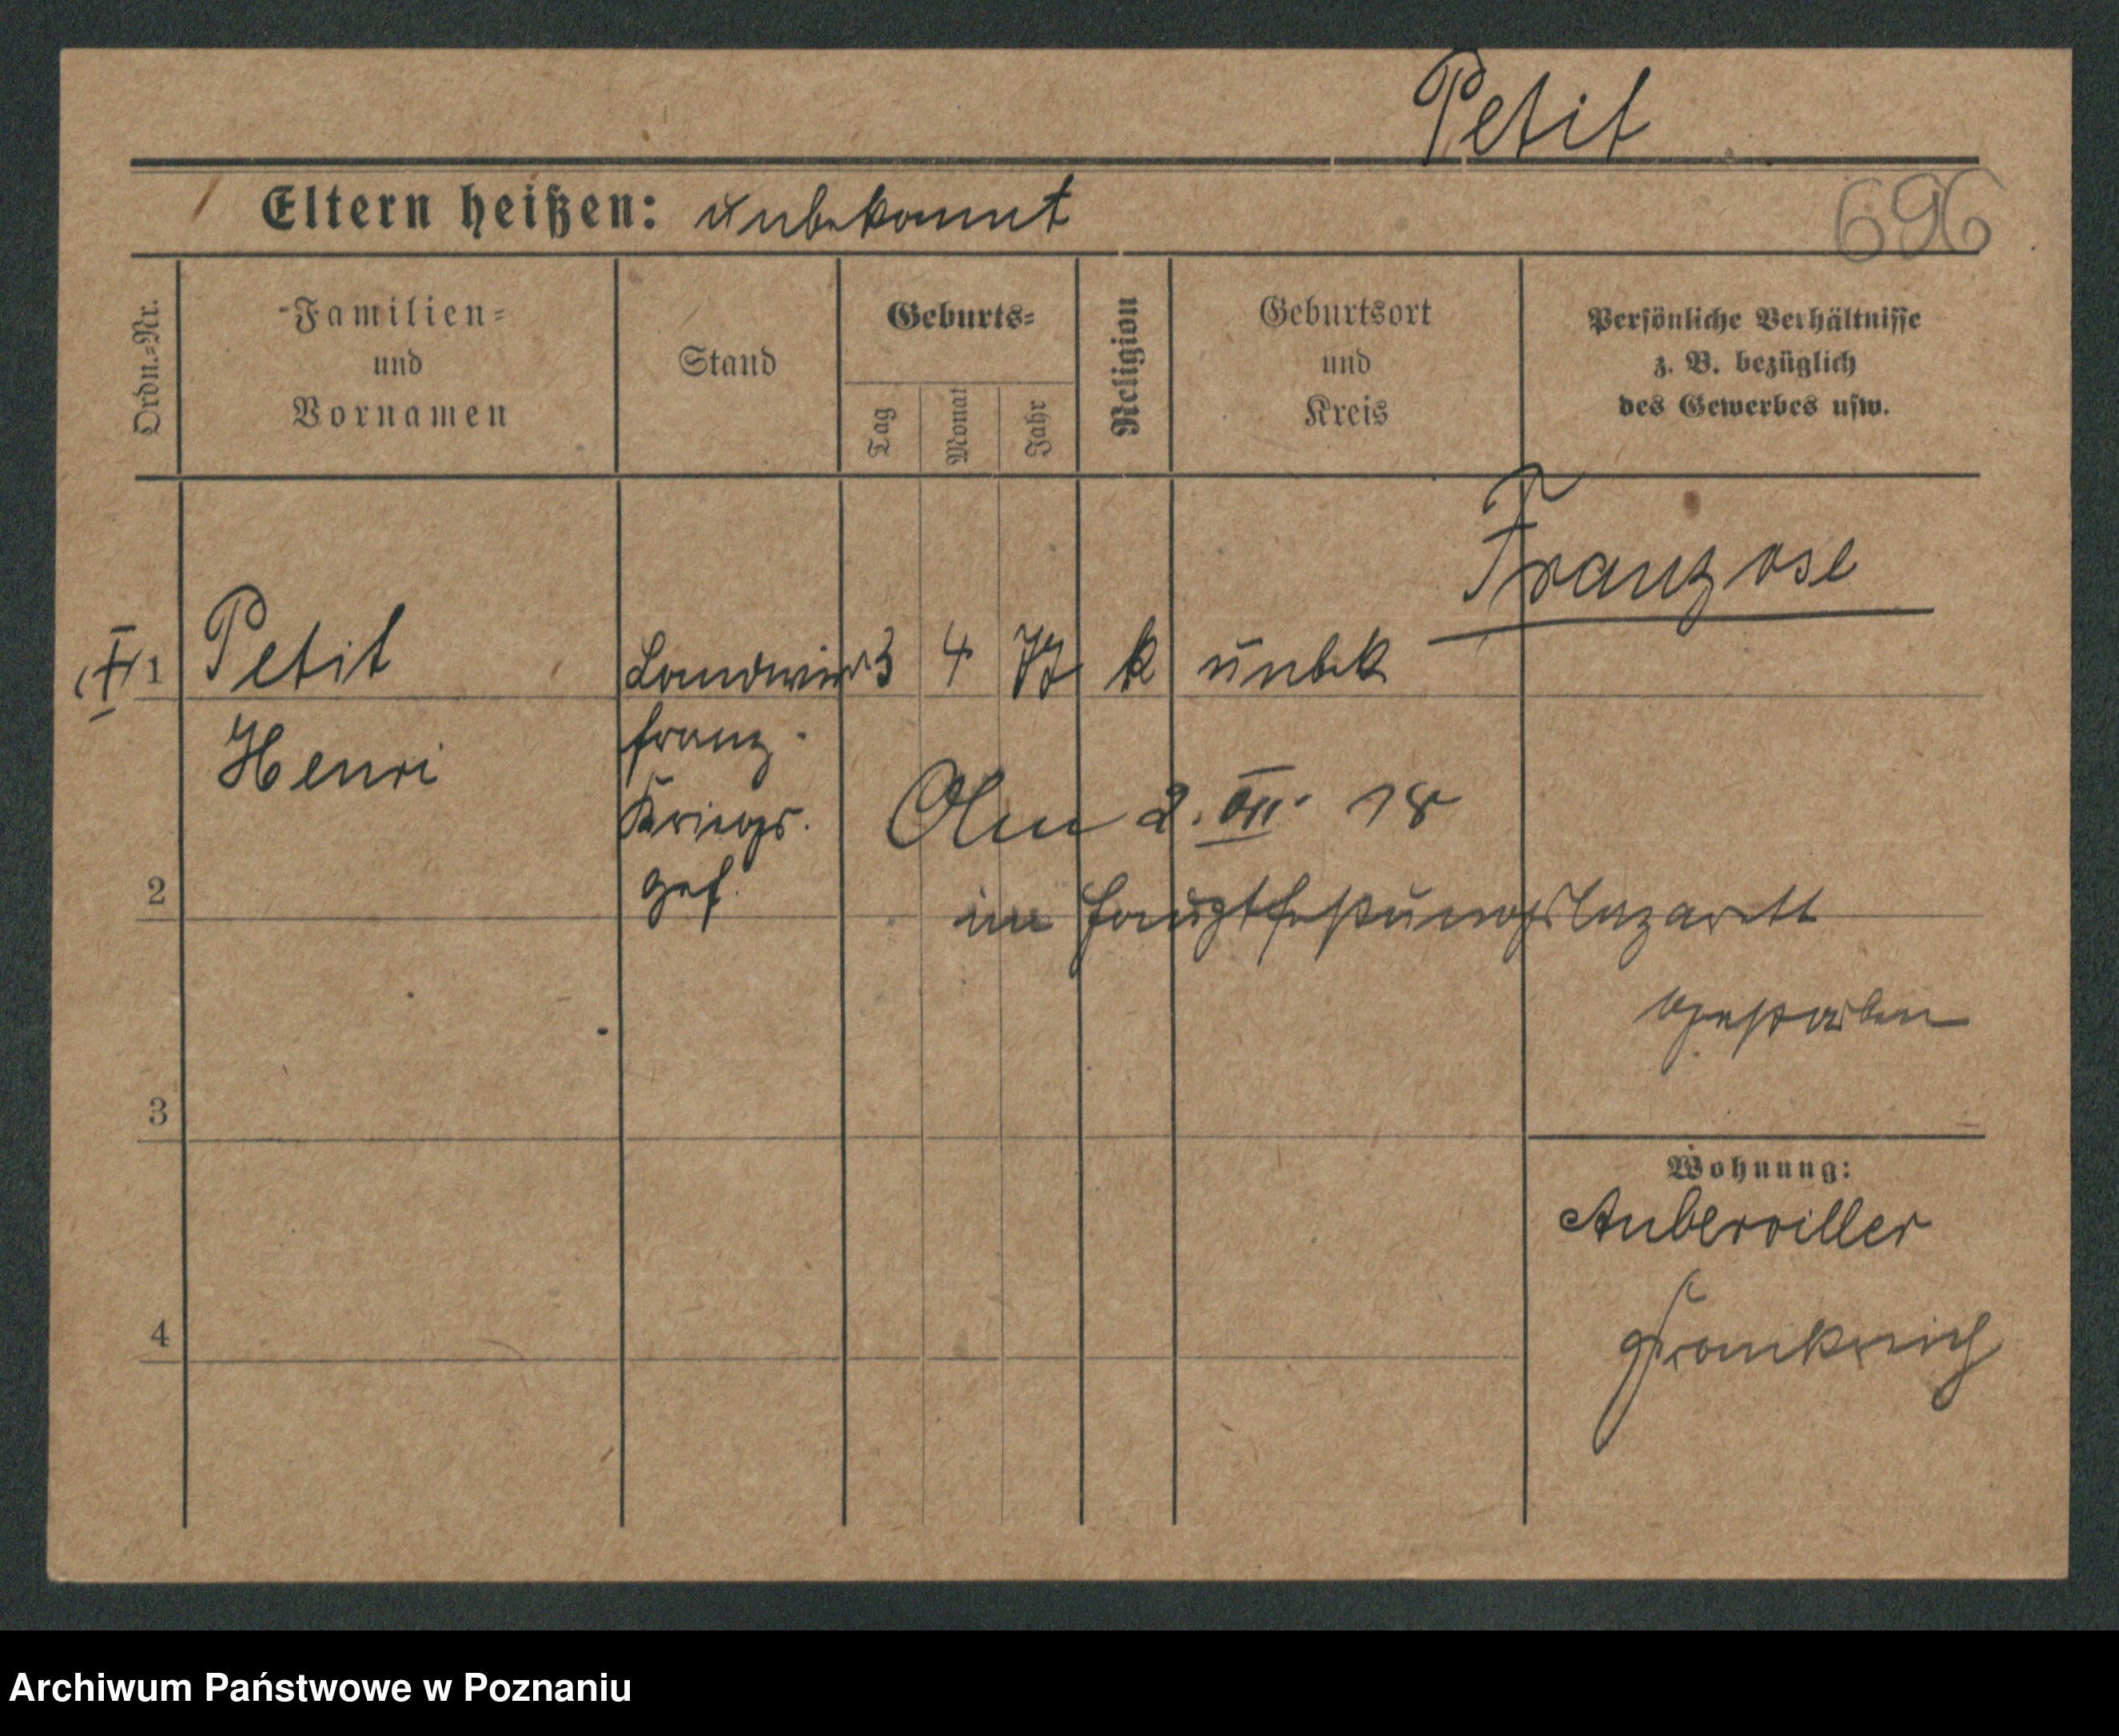 Petit
Eltern heißen: unbekannt
696
Ordn.-Nr.
Familien-
und
Vornamen
Stand
Geburts-
Tag
Monat
Jahr
Religion
Geburtsort
und
Kreis
Persönliche Verhältnisse
z. B. bezüglich
des Gewerbes usw.
Franzose
1 Petit Landwirt 3 4 77 k unbek
Henri franz.
Kriegs.
gef.
Am 2. VII. 18
2
im Hauptfestungslazarett
gestorben
3
Wohnung:
Auberviller
4
Frankreich
Archiwum Państwowe w Poznaniu